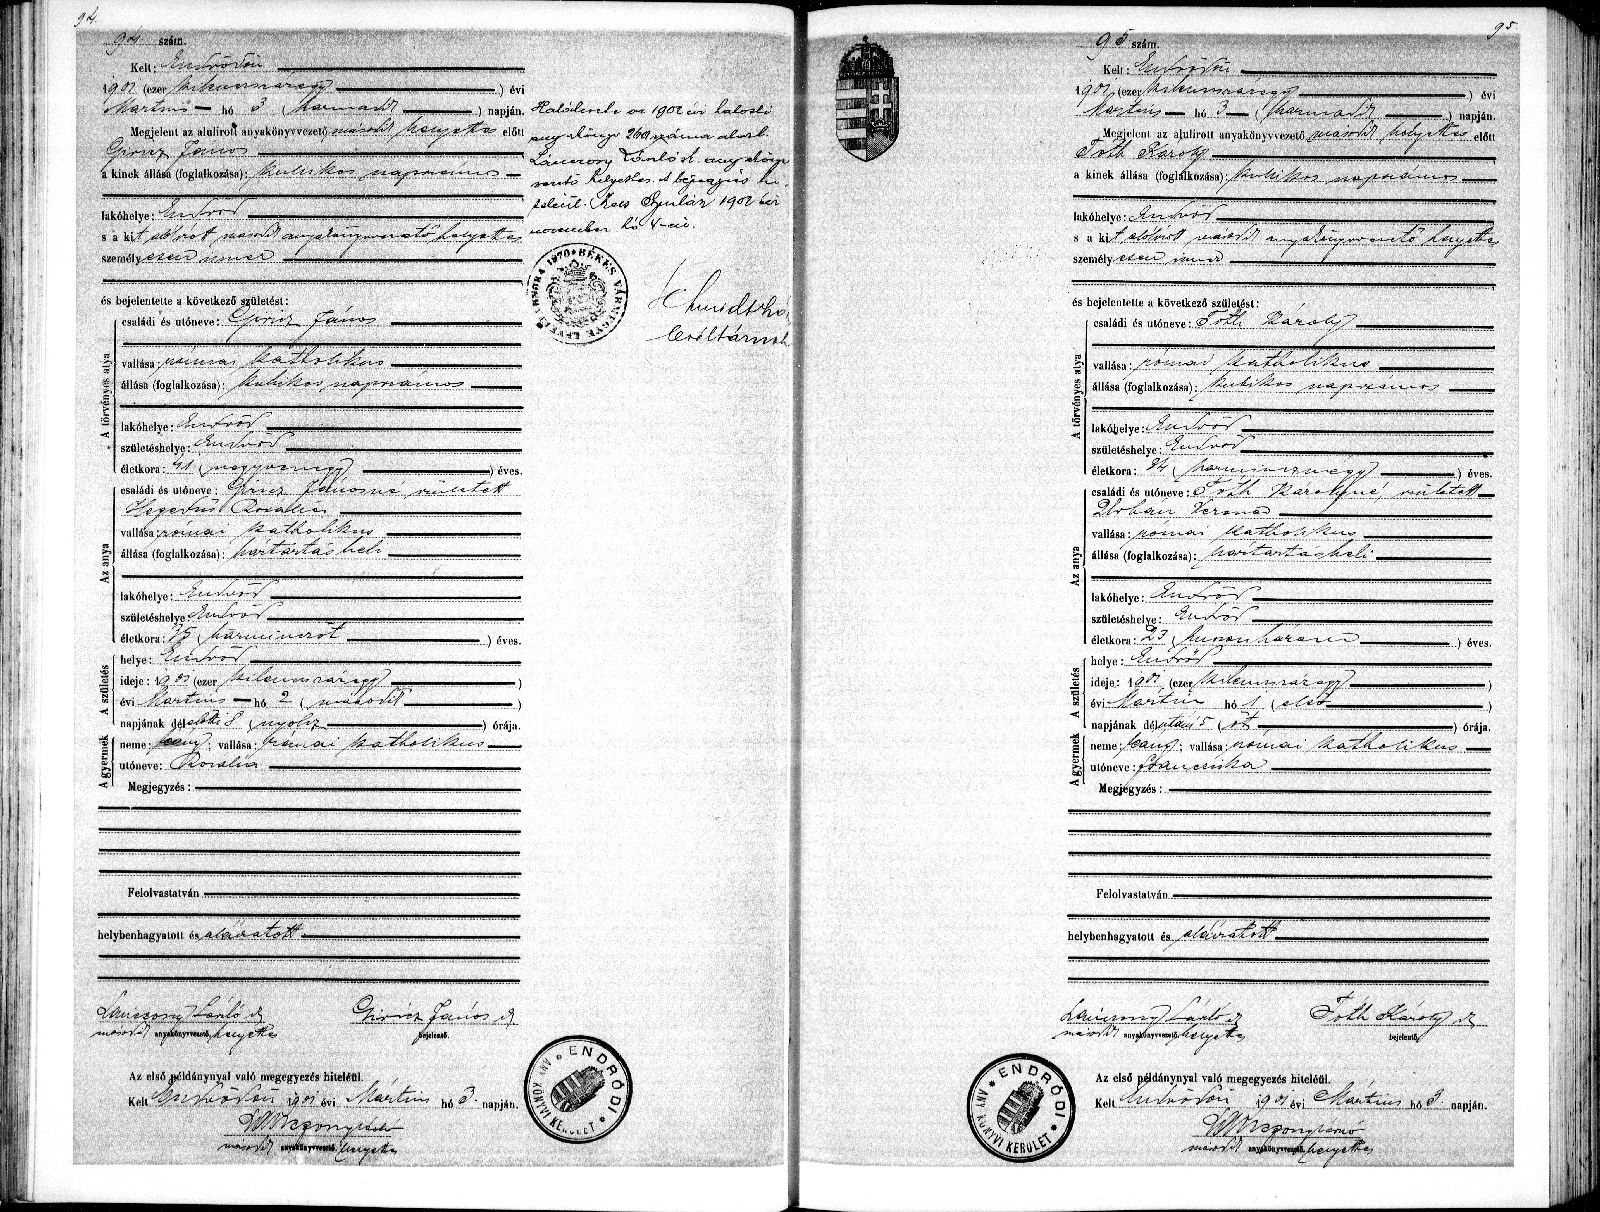 94.
94 szám.
Kelt: Endrődön
1901 (ezer kilenczszázegy) évi
Martius hó 3 (harmadik) napján.
Megjelent az alulirott anyakönyvvezető második helyettes előtt
Giricz János
a kinek állása (foglalkozása): kubikos napszámos
lakóhelye: Endrőd
s a kit alólirott második anyakönyvvezető helyettes
személyesen ismer
és bejelentette a következő születést:
A törvényes atya
családi és utóneve: Giricz János
vallása: római katholikus
állása (foglalkozása): kubikos napszámos
lakóhelye: Endrőd
születéshelye: Endrőd
életkora: 41 (negyvenegy) éves.
Az anya
családi és utóneve: Giricz Jánosné született
Hegedüs Rozália
vallása: római katholikus
állása (foglalkozása): háztartásbeli
lakóhelye: Endrőd
születéshelye: Endrőd
életkora: 35 (harminczöt) éves.
A születés
helye: Endrőd
ideje: 1901 (ezer kilenczszázegy)
évi Martius hó 2 (második)
napjának délelőtti 8 (nyolcz) órája.
A gyermek
neme: leány; vallása: római katholikus
utóneve: Rozália
Megjegyzés:
Felolvastatván
helybenhagyatott és aláiratott
Lánczony László sk
második anyakönyvvezető helyettes
Giricz János sk
bejelentő.
Az első példánynyal való megegyezés hiteléül.
Kelt Endrődön 1901 évi Mártius hó 3. napján.
második anyakönyvvezető helyettes
Halálesete az 1901 évi halotti
anyakönyv 260 száma alatt
november hó 4-én.
BÉKÉS VÁRMEGYE LEVÉLTÁRNOKA 1870
Levéltárnok
ENDRŐDI ANYAKÖNYVI KERÜLET
95.
95 szám.
Kelt: Endrődön
1901 (ezer kilenczszázegy) évi
Martius hó 3 (harmadik) napján.
Megjelent az alulirott anyakönyvvezető második helyettes előtt
Tóth Károly
a kinek állása (foglalkozása): kubikos napszámos
lakóhelye: Endrőd
s a kit alólirott második anyakönyvvezető helyettes
személyesen ismer
és bejelentette a következő születést:
A törvényes atya
családi és utóneve: Tóth Károly
vallása: római katholikus
állása (foglalkozása): kubikos napszámos
lakóhelye: Endrőd
születéshelye: Endrőd
életkora: 34 (harmincznégy) éves.
Az anya
családi és utóneve: Tóth Károlyné született
Verona
vallása: római katholikus
állása (foglalkozása): háztartásbeli
lakóhelye: Endrőd
születéshelye: Endrőd
életkora: 23 (huszonhárom) éves.
A születés
helye: Endrőd
ideje: 1901 (ezer kilenczszázegy)
évi Martius hó 1 (első)
napjának délutáni 5 (öt) órája.
A gyermek
neme: leány; vallása: római katholikus
utóneve: Francziska
Megjegyzés:
Felolvastatván
helybenhagyatott és aláiratott
Lánczony László sk
második anyakönyvvezető helyettes
Tóth Károly sk
bejelentő.
Az első példánynyal való megegyezés hiteléül.
Kelt Endrődön 1901 évi Mártius hó 3. napján.
második anyakönyvvezető helyettes
ENDRŐDI ANYAKÖNYVI KERÜLET